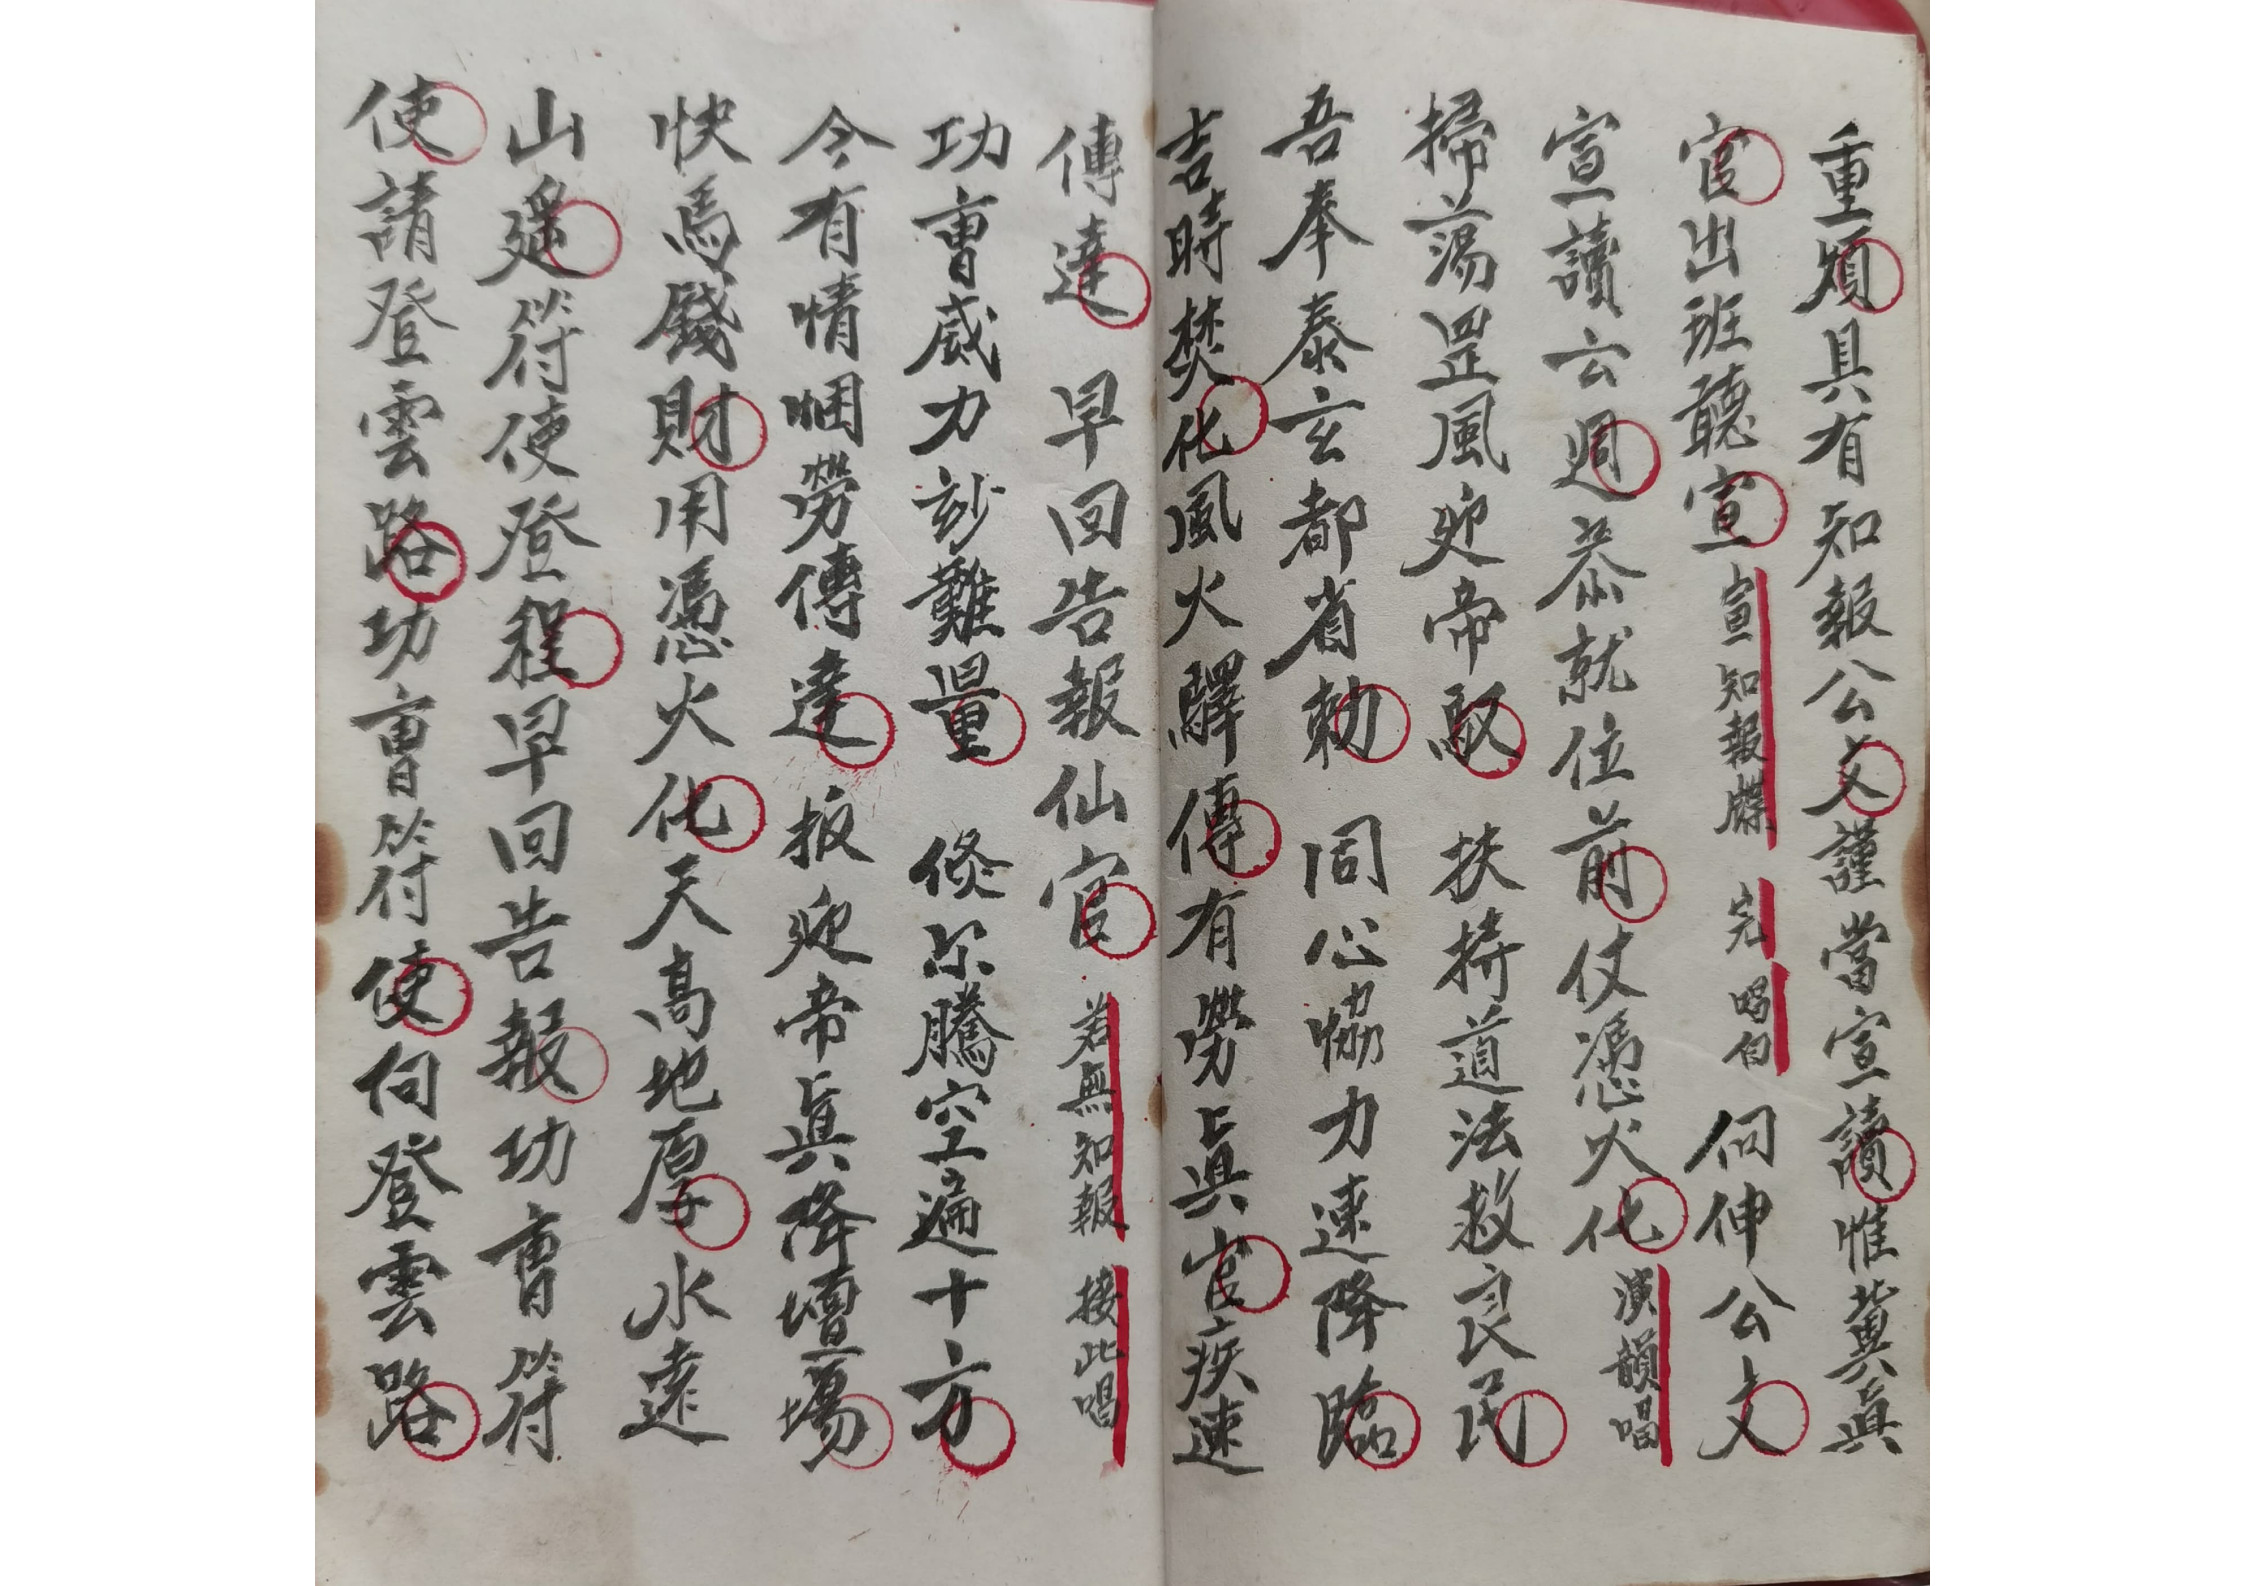 重煩具有知報公文謹當宣讀惟冀真
官出班聽宣宣知報牒完唱白伺伸公文
宣讀云週恭就位前仗憑火化演韻唱
掃蕩罡風迎帝馭扶持道法救良民
吾奉泰玄都省勅同心協力速降臨
吉時焚化風火驛傳有勞真官疾速
傳達早回告報仙官若無知報接此唱
功曹威力玅難量倐尔騰空遍十方
今有情悃勞傳達扳迎帝真降壇場
快馬錢財用憑火化天高地厚水遠
山遥符使登程早回告報功曹符
使請登雲路功曹符使伺登雲路